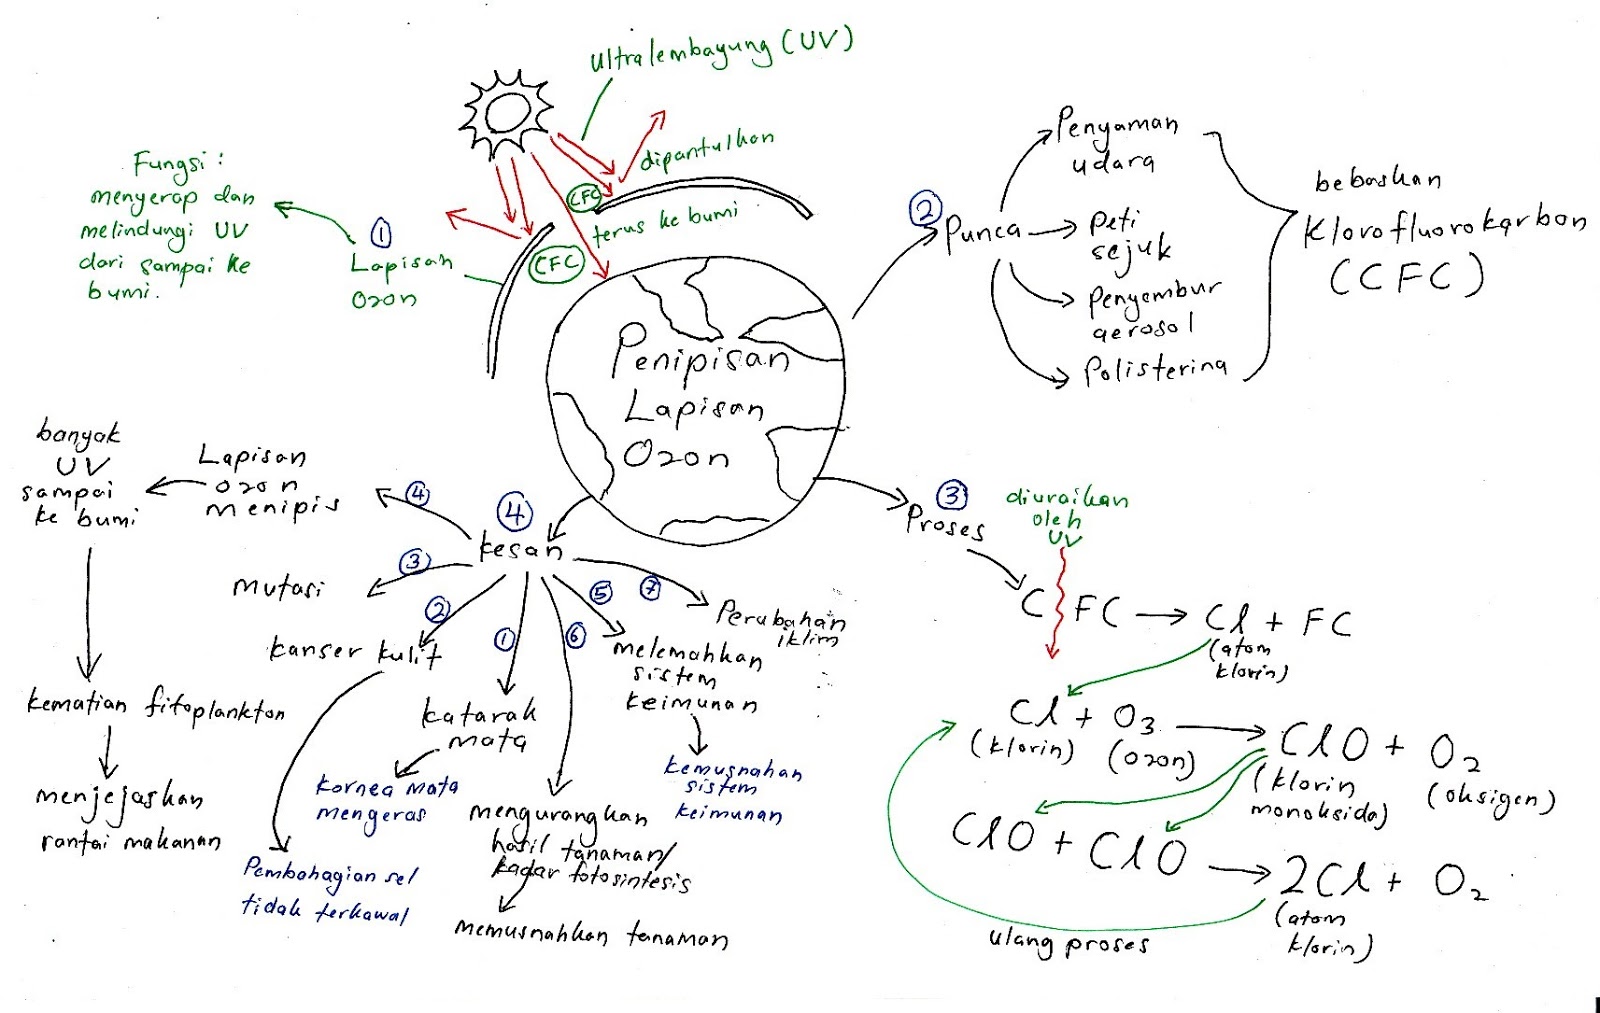 Ultralembayung (UV)
dipantulkan
CFC
terus ke bumi
CFC
Fungsi:
menyerap dan
melindungi UV
dari sampai ke
bumi.
①
Lapisan
Ozon
Penipisan
Lapisan
Ozon
②
Punca
Penyaman
udara
Peti
sejuk
Penyembur
aerosol
Polisterina
bebaskan
Klorofluorokarbon
(CFC)
③
Proses
diuraikan
oleh
UV
CFC → Cl + FC
(atom
klorin)
Cl + O₃ → ClO + O₂
(klorin) (ozon)
(klorin
monoksida)
(oksigen)
ClO + ClO → 2Cl + O₂
(atom
klorin)
ulang proses
④
kesan
④
Lapisan
ozon
menipis
banyak
UV
sampai
ke bumi
kematian fitoplankton
menjejaskan
rantai makanan
③
Mutasi
②
kanser kulit
Pembahagian sel
tidak terkawal
①
katarak
mata
kornea mata
mengeras
⑥
mengurangkan
hasil tanaman/
kadar fotosintesis
memusnahkan tanaman
⑤
melemahkan
sistem
keimunan
kemusnahan
sistem
keimunan
⑦
Perubahan
iklim